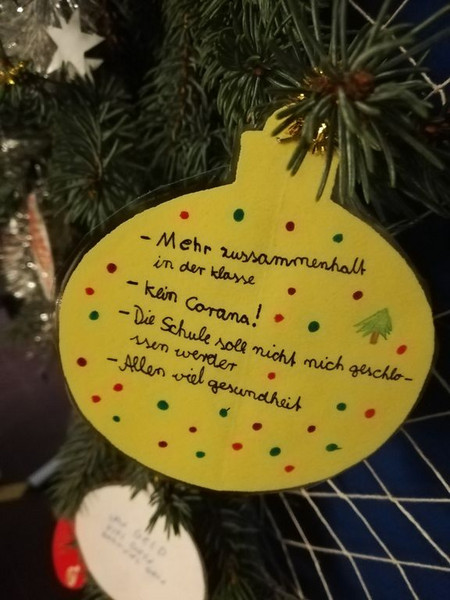 - Mehr zussammenhalt
in der klasse
- kein Corana!
- Die Schule soll nicht nich geschlo-
ssen werder
- Allen viel gesundheit